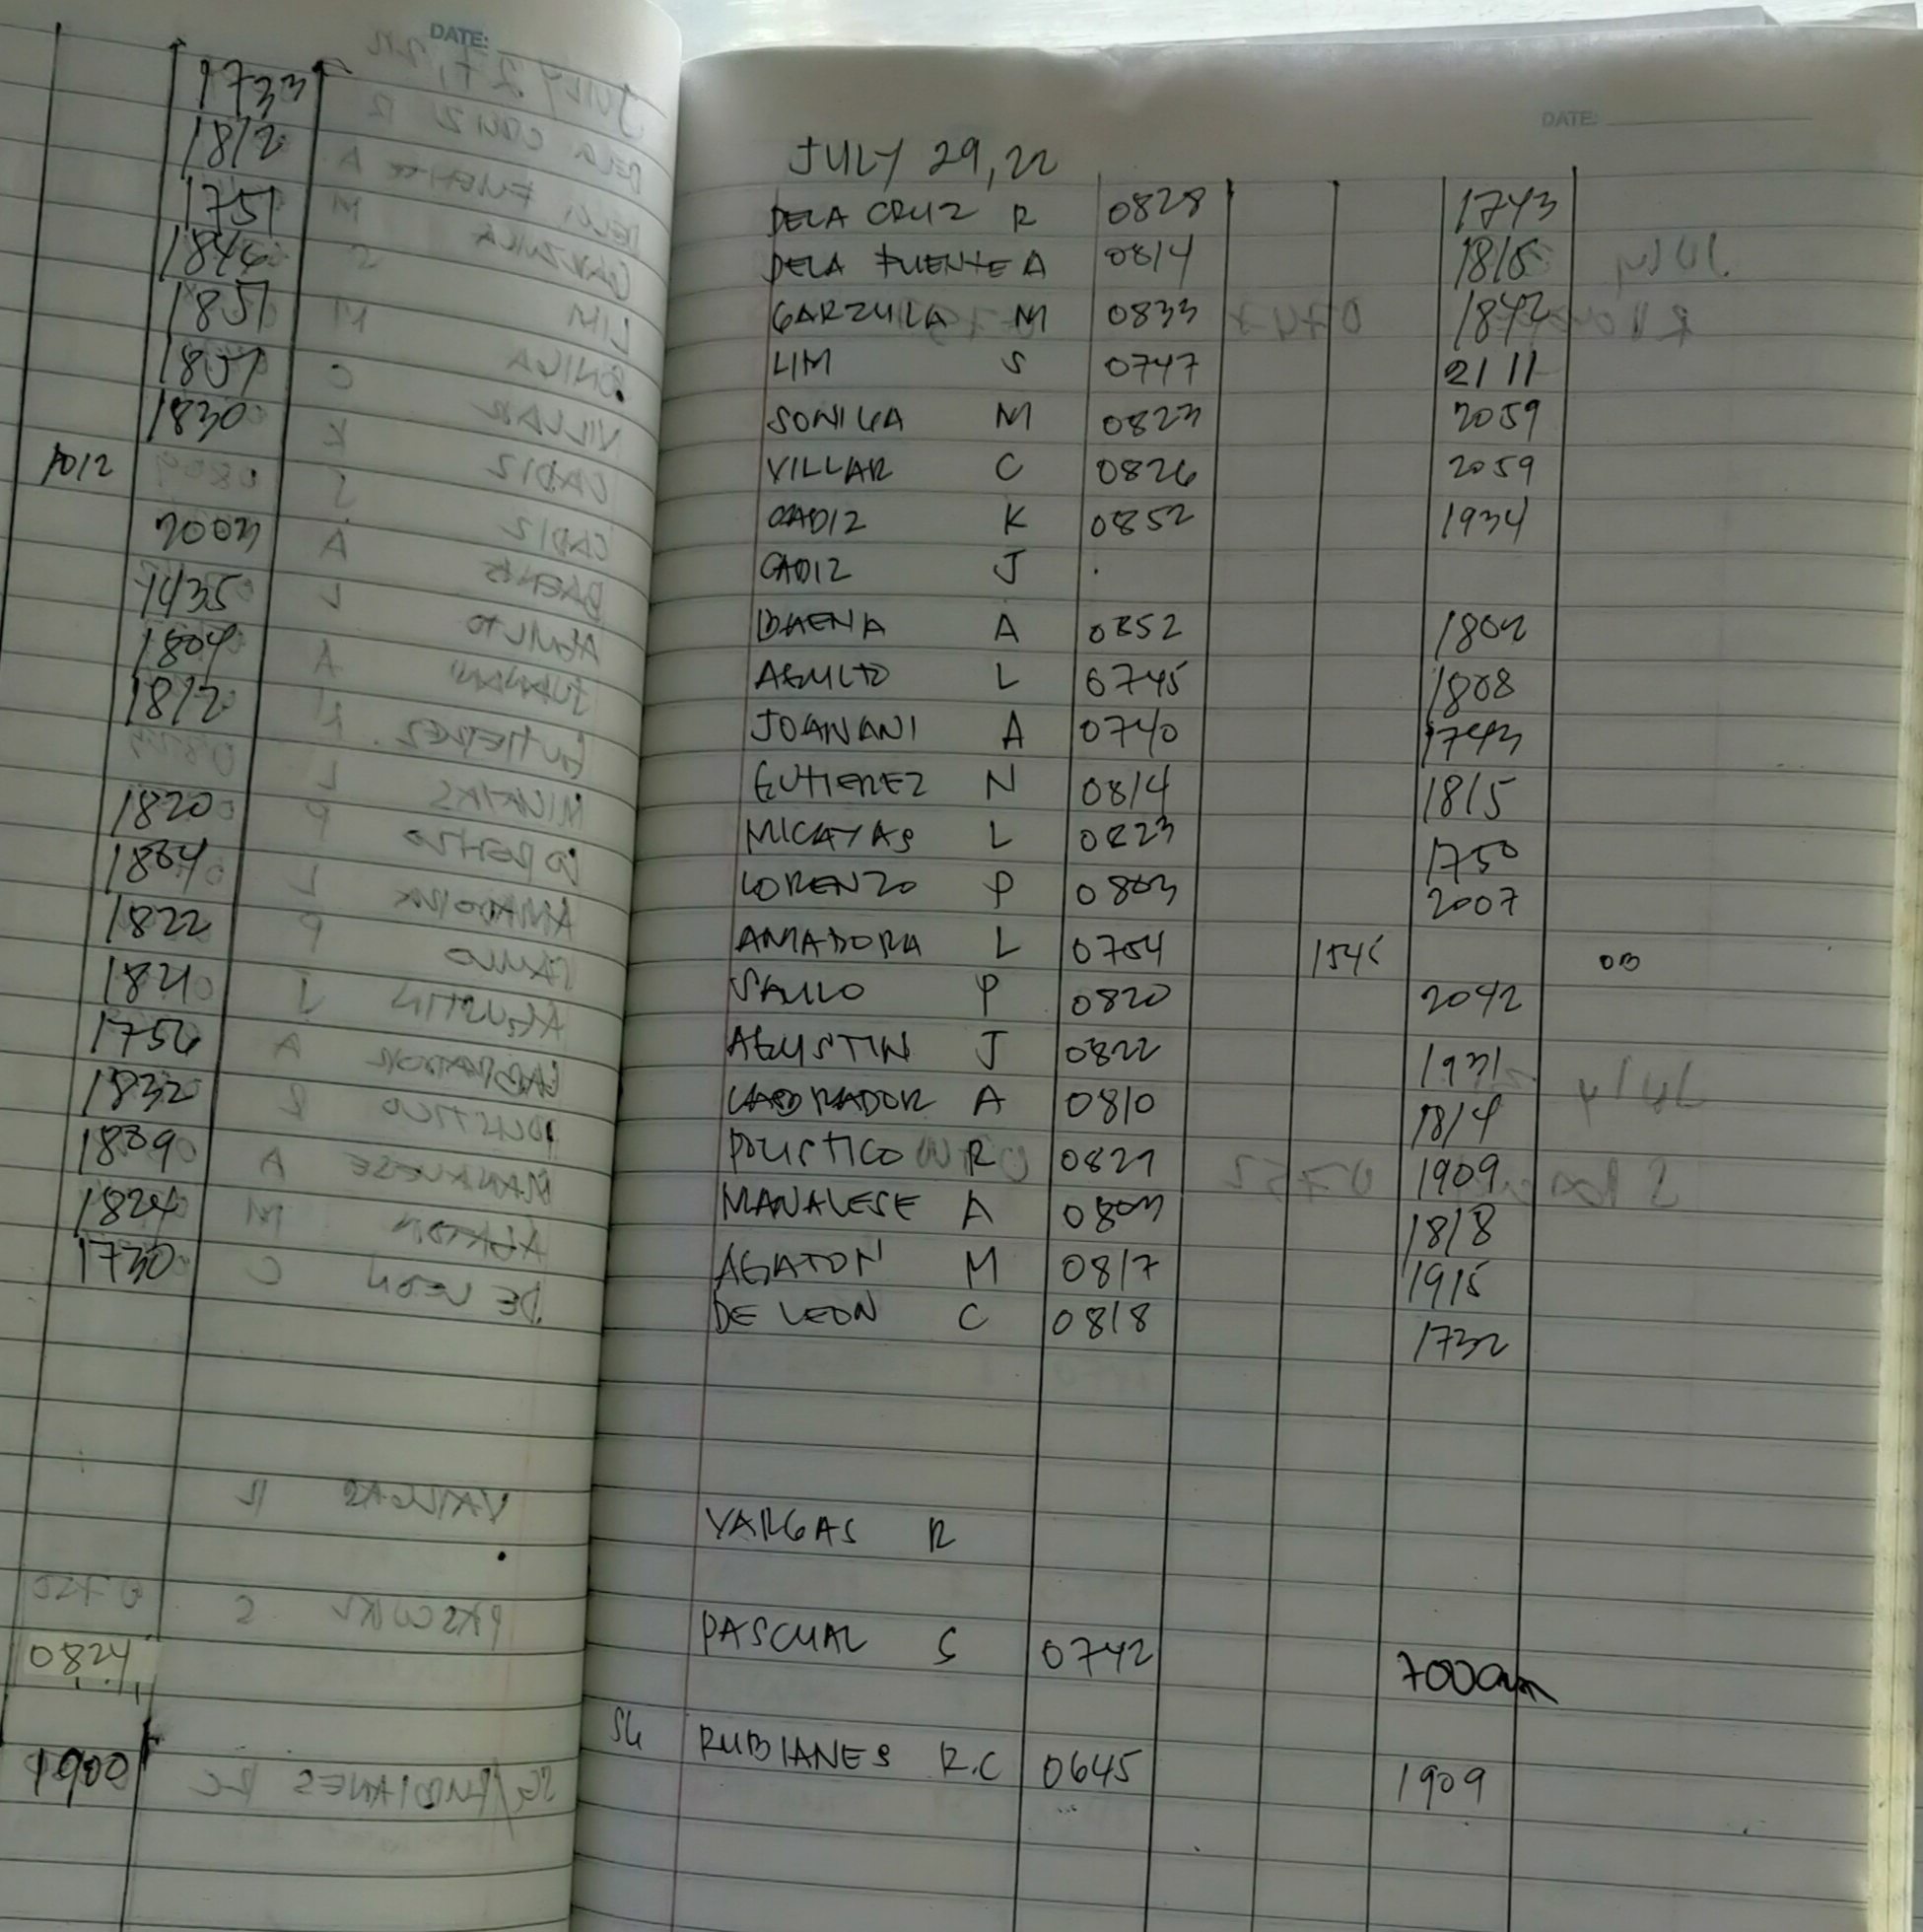 DATE:
1733
1812
1751
1846
1851
1851
1830
1012
2003
1435
1804
1812
1820
1804
1822
1821
1756
1832
1839
1824
1730
0824
1900
DATE:
JULY 29, 22
DELA CRUZ R 0828 1743
DELA FUENTE A 0814 1815
GARZULA M 0833 1842
LIM S 0747 2111
SONIGA M 0823 2059
VILLAR C 0826 2059
CADIZ K 0852 1934
CADIZ J
BAENA A 0852 1802
AGULTO L 0745 1808
JOANANI A 0740 1743
GUTIEREZ N 0814 1815
MICAYAS L 0823 1750
LORENZO P 0803 2007
AMADORA L 0754 1546 OB
SAULO P 0820 2042
AGUSTIN J 0822 1931
LABORADOR A 0810 1814
POLISTICO R 0821 1909
MANALESE A 0803 1818
AGATON M 0817 1915
DE LEON C 0818 1732
VARGAS R
PASCUAL S 0742 700am
SG RUBIANES R.C 0645 1909